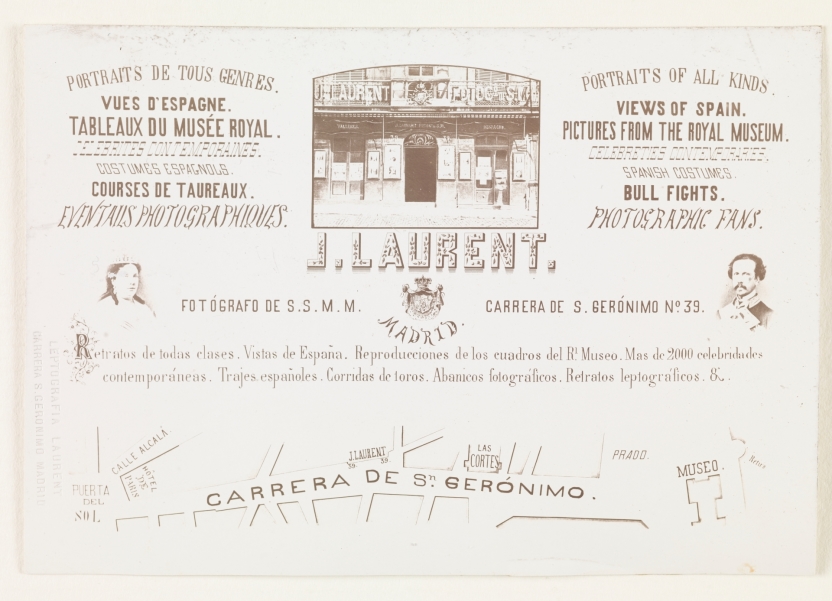 PORTRAITS DE TOUS GENRES.
VUES D'ESPAGNE.
TABLEAUX DU MUSÉE ROYAL.
CELEBRITES CONTEMPORAINES.
COSTUMES ESPAGNOLS.
COURSES DE TAUREAUX.
EVENTAILS PHOTOGRAPHIQUES.
J. LAURENT FOTOG
PORTRAITS OF ALL KINDS.
VIEWS OF SPAIN.
PICTURES FROM THE ROYAL MUSEUM.
CELEBRITIES CONTEMPORARIES.
SPANISH COSTUMES.
BULL FIGHTS.
PHOTOGRAPHIC FANS.
J. LAURENT.
FOTÓGRAFO DE S.S.M.M.
CARRERA DE S. GERÓNIMO Nº 39.
MADRID.
Retratos de todas clases. Vistas de España. Reproducciones de los cuadros del Rl. Museo. Mas de 2000 celebridades
contemporáneas. Trajes españoles. Corridas de toros. Abanicos fotográficos. Retratos leptográficos. &.
LEPTOGRAFIA LAURENT
CARRERA S. GERONIMO MADRID
CALLE ALCALÁ.
HÔTEL
DE
PARIS
PUERTA
DEL
SOL
J. LAURENT
39. 39.
LAS
CORTES
PRADO.
MUSEO.
Retiro
CARRERA DE Sn. GERÓNIMO.